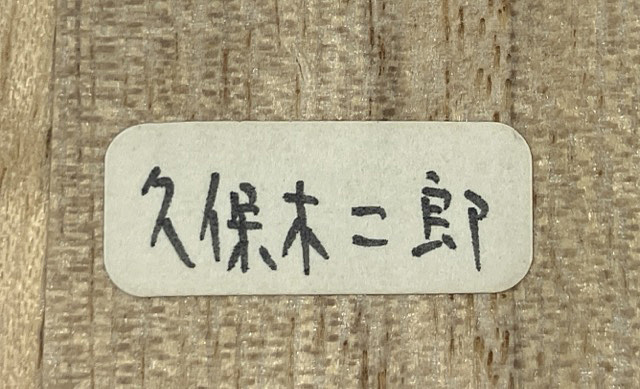 久保木二郎